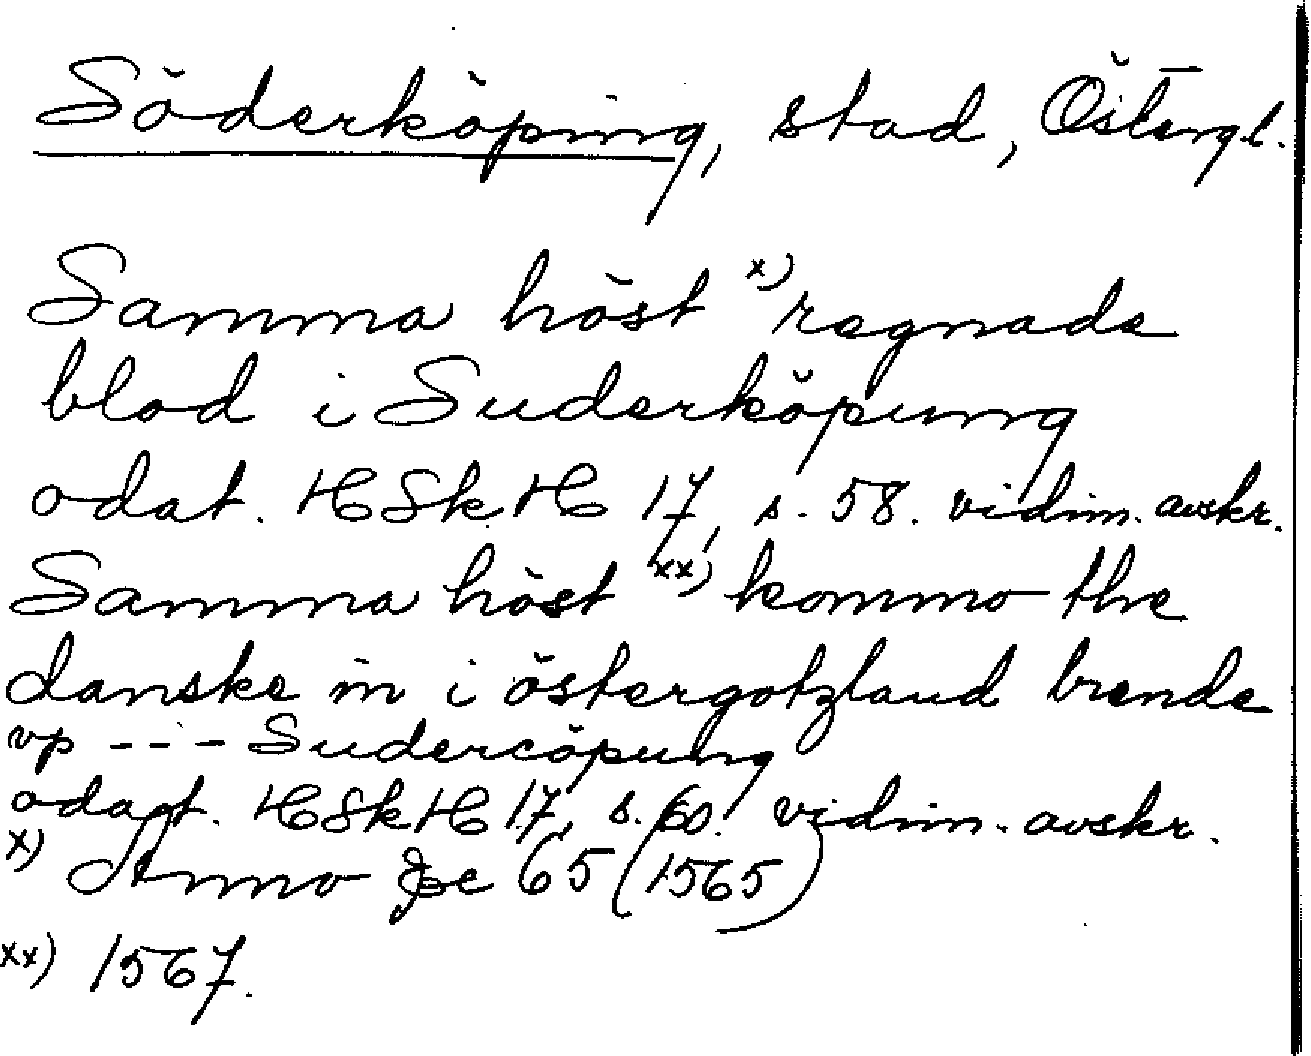 Söderköping, stad, Östergl.
Samma höst x) regnade
blod i Suderköpung
odat. HSkH 17, s. 58. vidim. avskr.
Samma höst xx) kommo the
danske in i östergotzland brende
vp --- - Sudercöpung
odat. HSkH 17, s. 60. vidim. avskr.
x) Anno 65 (1565)
xx) 1567.